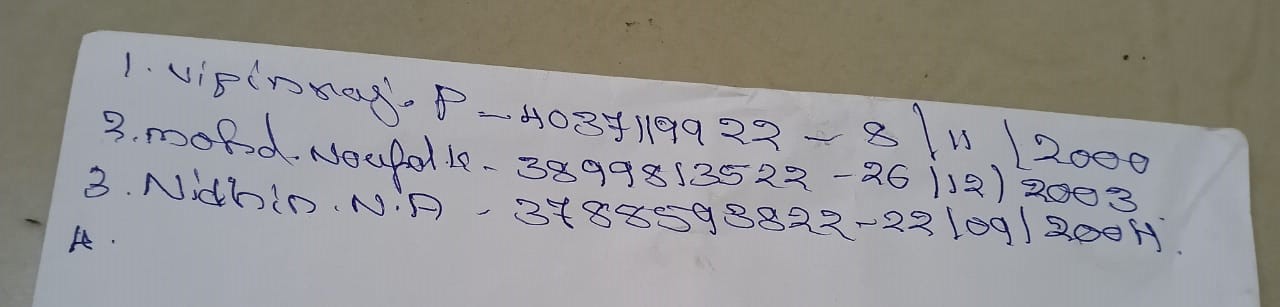 1. Vipinraj. P - 4037119922 - 8/11/2000
2. mohd. Noufal K - 3899813522 - 26/12/2003
3. Nidhin. N.A - 3788593822 - 22/09/2004.
4.